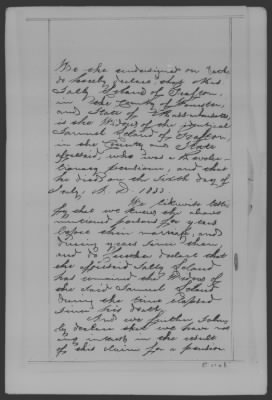 We the undersigned on oath
do hereby declare that Mrs
Sally Leland of Grafton,
in the County of Worcester,
and State of Massachusetts,
is the Widow of the identical
Samuel Leland of Grafton,
in the County and State
aforesaid, who was a Revolu-
tionary pensioner, and that
he died on the sixth day of
July, A. D. 1833.
We likewise testi-
fy that we knew the above
mentioned persons for years
before their marriage, and
during years since then,
and do further declare that
the aforesaid Sally Leland
has remained the Widow of
the said Samuel Leland
during the time elapsed
since his death,
And we further solemn-
ly declare that we have not
any interest in the result
of this claim for a pension